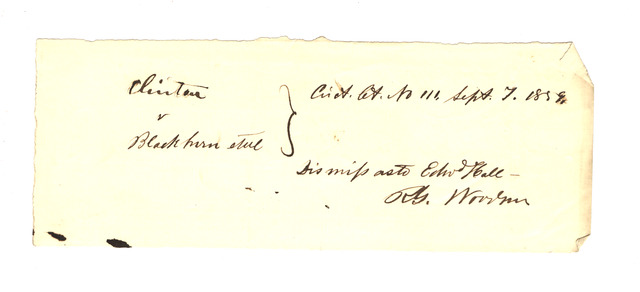 Clinton
v
Blackburn et al
Circt. Ct. No 111. Sept. T. 1859.
Dismiss as to Edwd Hall –
R.G. Woodson